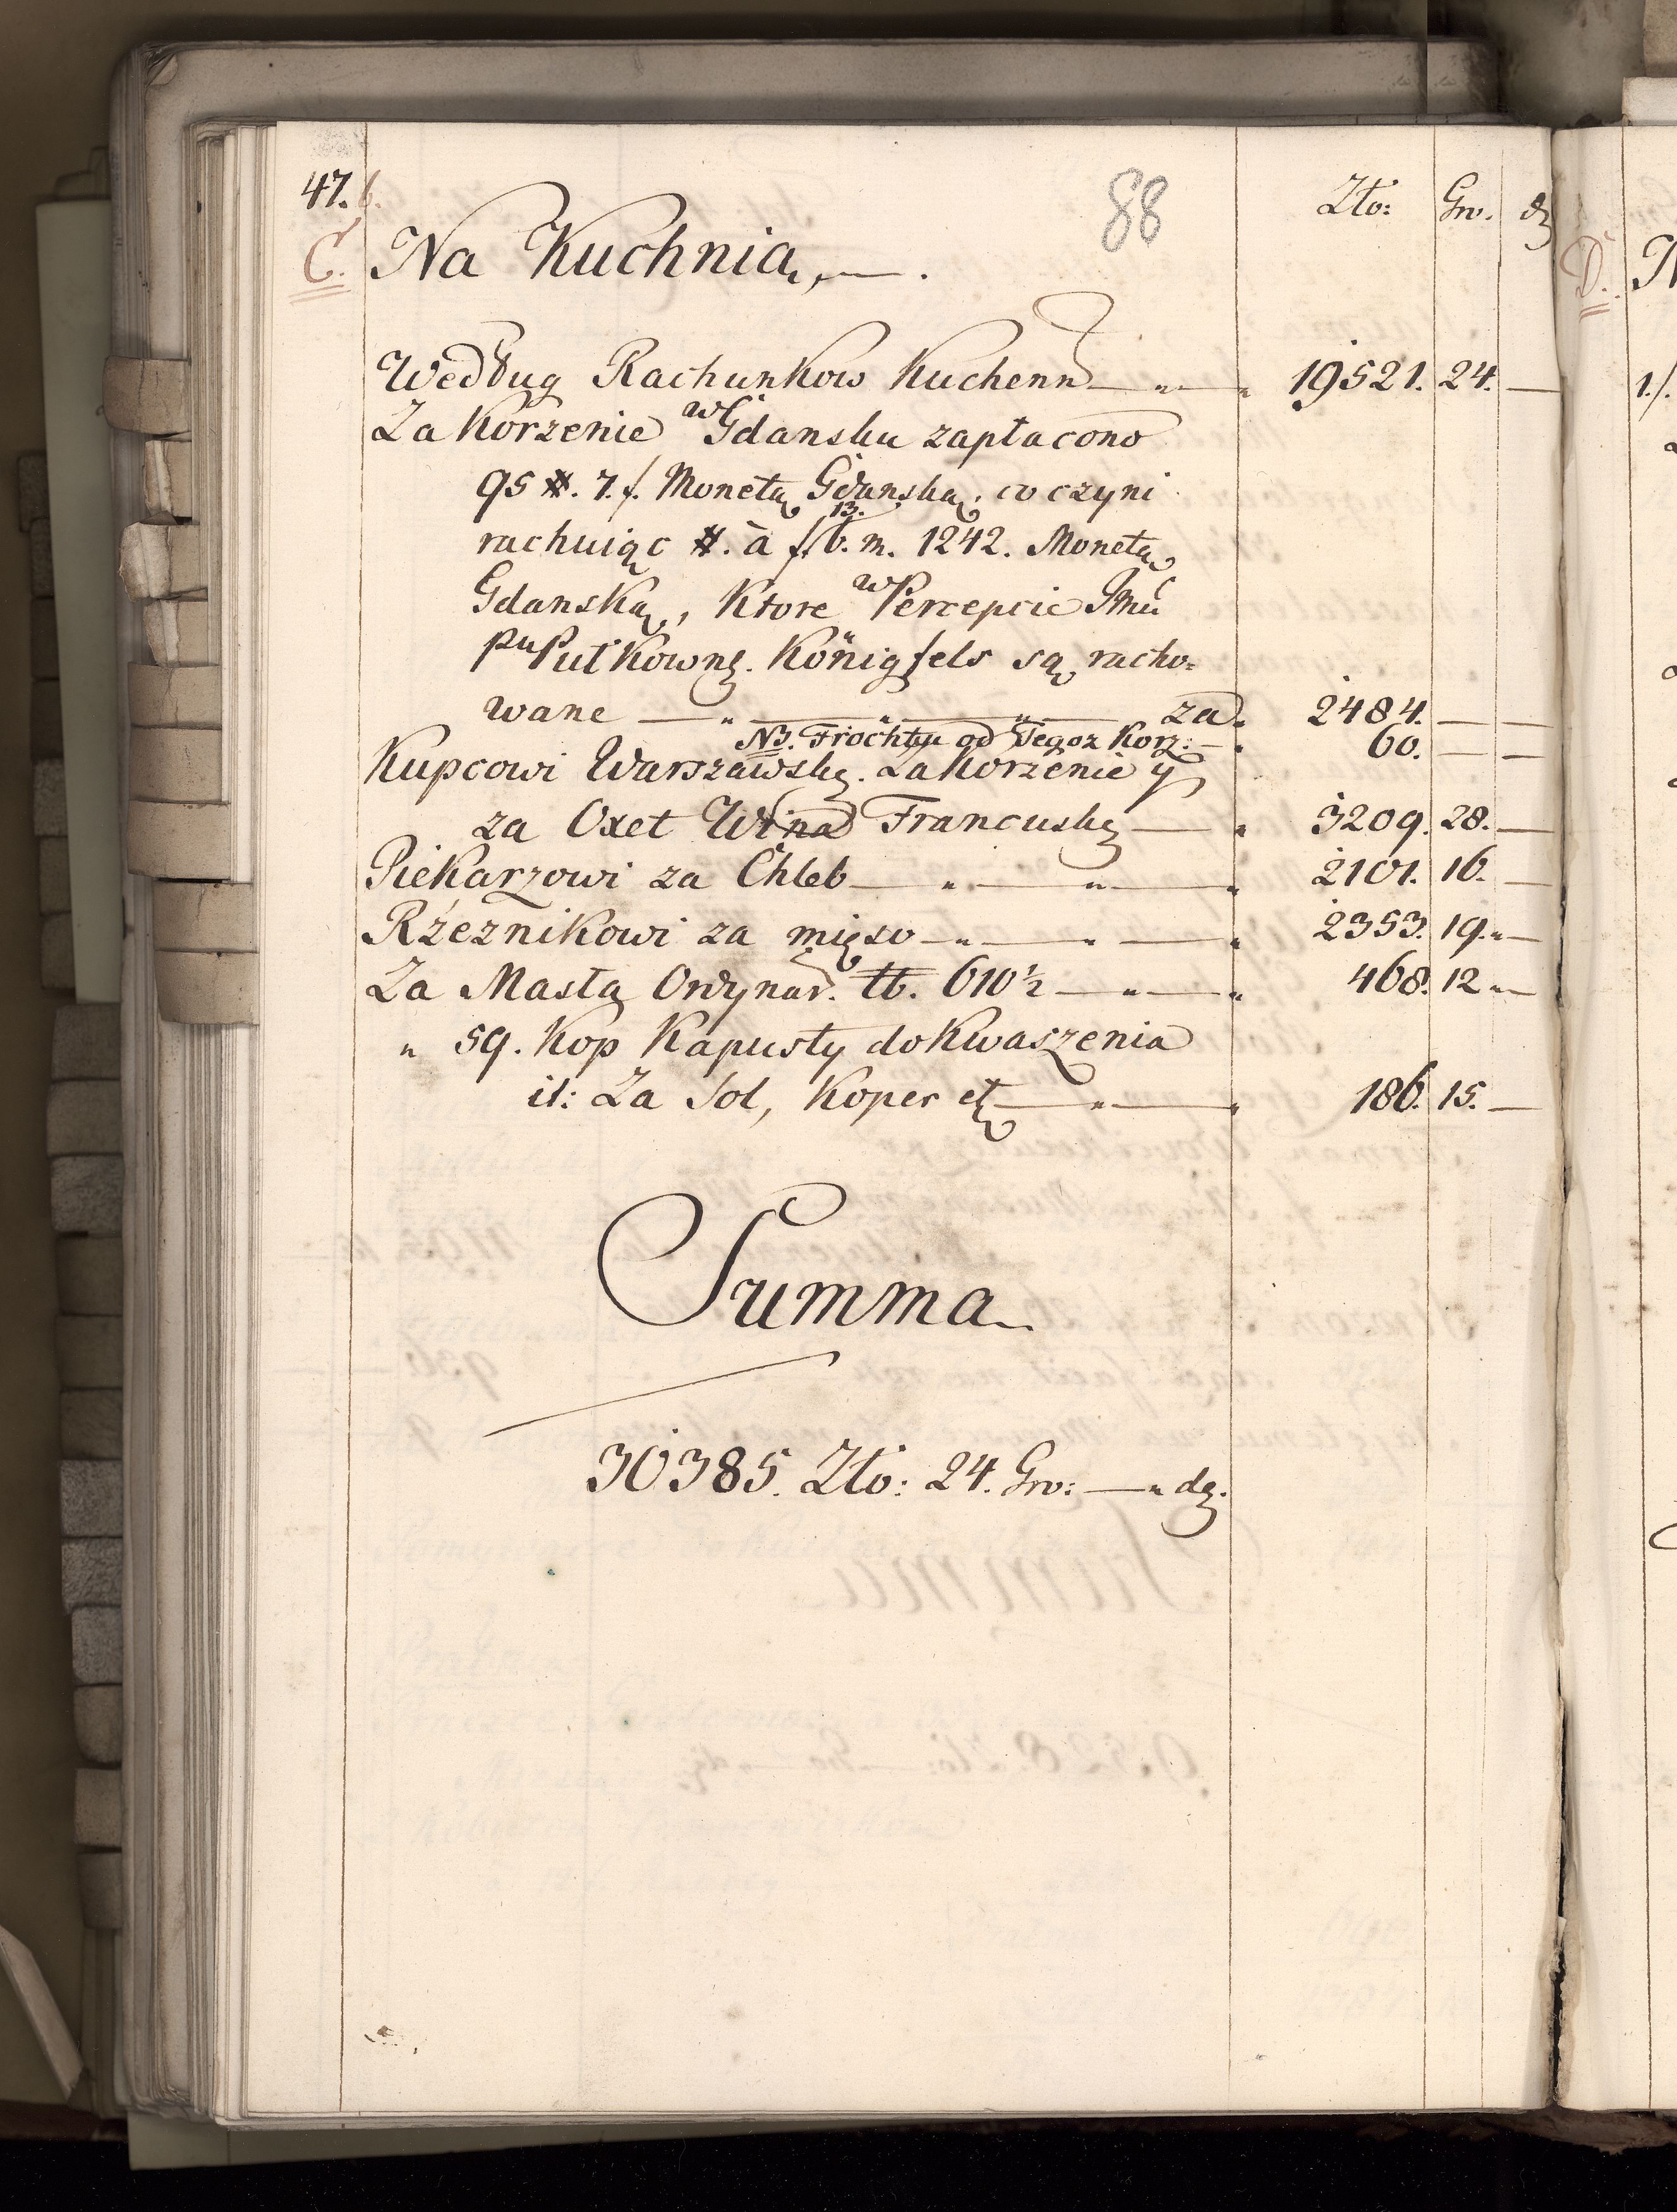 47. b.
88
Zło: Gro. dz
C. Na Kuchnią, —.
Według Rachunkow Kuchenn — „ — „ 19521. 24. —
Za Korzenie w Gdansku zapłacono
95 #. 7. f. Monetą Gdanską, co czyni
rachuiąc #. à f. 13. 6. m. 1242. Monetą
Gdanską, Ktore w Percepcie Jmći
Pu Pułkowng. Königfels są racho=
wane — „ — „ — „ — za „ 2484. — —
NB. Frochty od Tegoz Korz: — „ 60. — —
Kupcowi Warszawskg. Za Korzenie y
za Oxet Wina Francuskg — „ 3209. 28. —
Piekarzowi za Chleb — „ — „ — „ 2101. 16. —
Rżeznikowi za mięso — „ — „ — „ 2353. 19. „ —
Za Masła Ordynar. ℔. 610½ — „ — „ 468. 12 „ —
„ 59. Kop Kapusty do Kwaszenia
it: Za Sol, Koper etc — „ — „ 186. 15. —
Summa
30385. Zło: 24. Gro: — „ dz.
D.
1./.